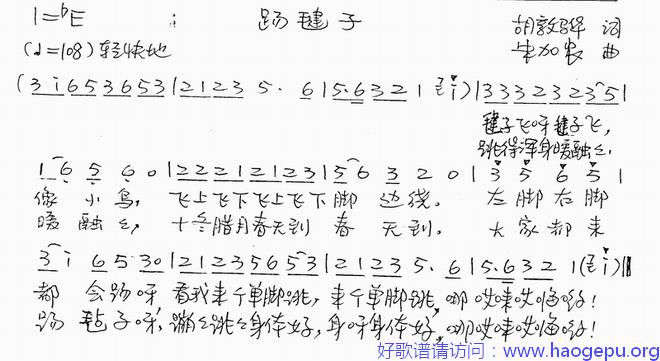 1=♭E 踢毽子
胡敦骅 词
(♩=108) 轻快地 朱加农 曲
(3 i 6 5 3 6 5 3 | 2 1 2 3 5· 6 | 5·6 3 2 1 i) | 3 3 3 2 3 2 3 5 |
毽子飞呀毽子飞,
跳得浑身暖融融,
1 6 5 6 0 | 2 2 2 1 2 1 2 3 | 5 6 3 2 0 | 3 5 6 5 |
像小鸟, 飞上飞下飞上飞下脚边绕。 左脚右脚
暖融融, 十冬腊月春天到 春天到。 大家都来
3 i 6 5 3 0 | 2 1 2 3 5 6 5 3 | 2 1 2 3 5· 6 | 5·6 3 2 1 (i) ||
都会踢呀 看我来个单脚跳, 来个单脚跳, 哪哎唻哎嗨哟!
踢毽子呀, 蹦蹦跳跳身体好, 身呀身体好, 哪哎唻哎嗨哟!
好歌谱请访问:www.haogepu.org